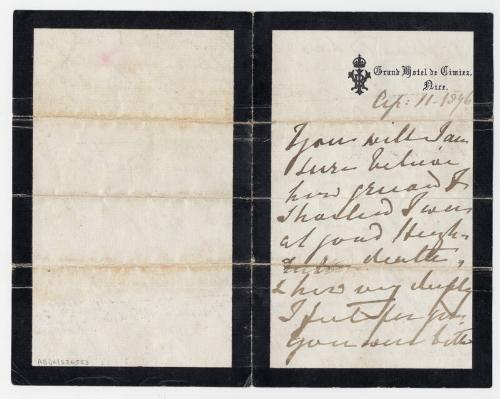 Grand Hotel de Cimiez,
Nice.
Ap: 11 - 1896
You will I am
sure believe
how grieved &
shocked I was
at good Hugh
death,
& how very deeply
I felt for you.
You were both